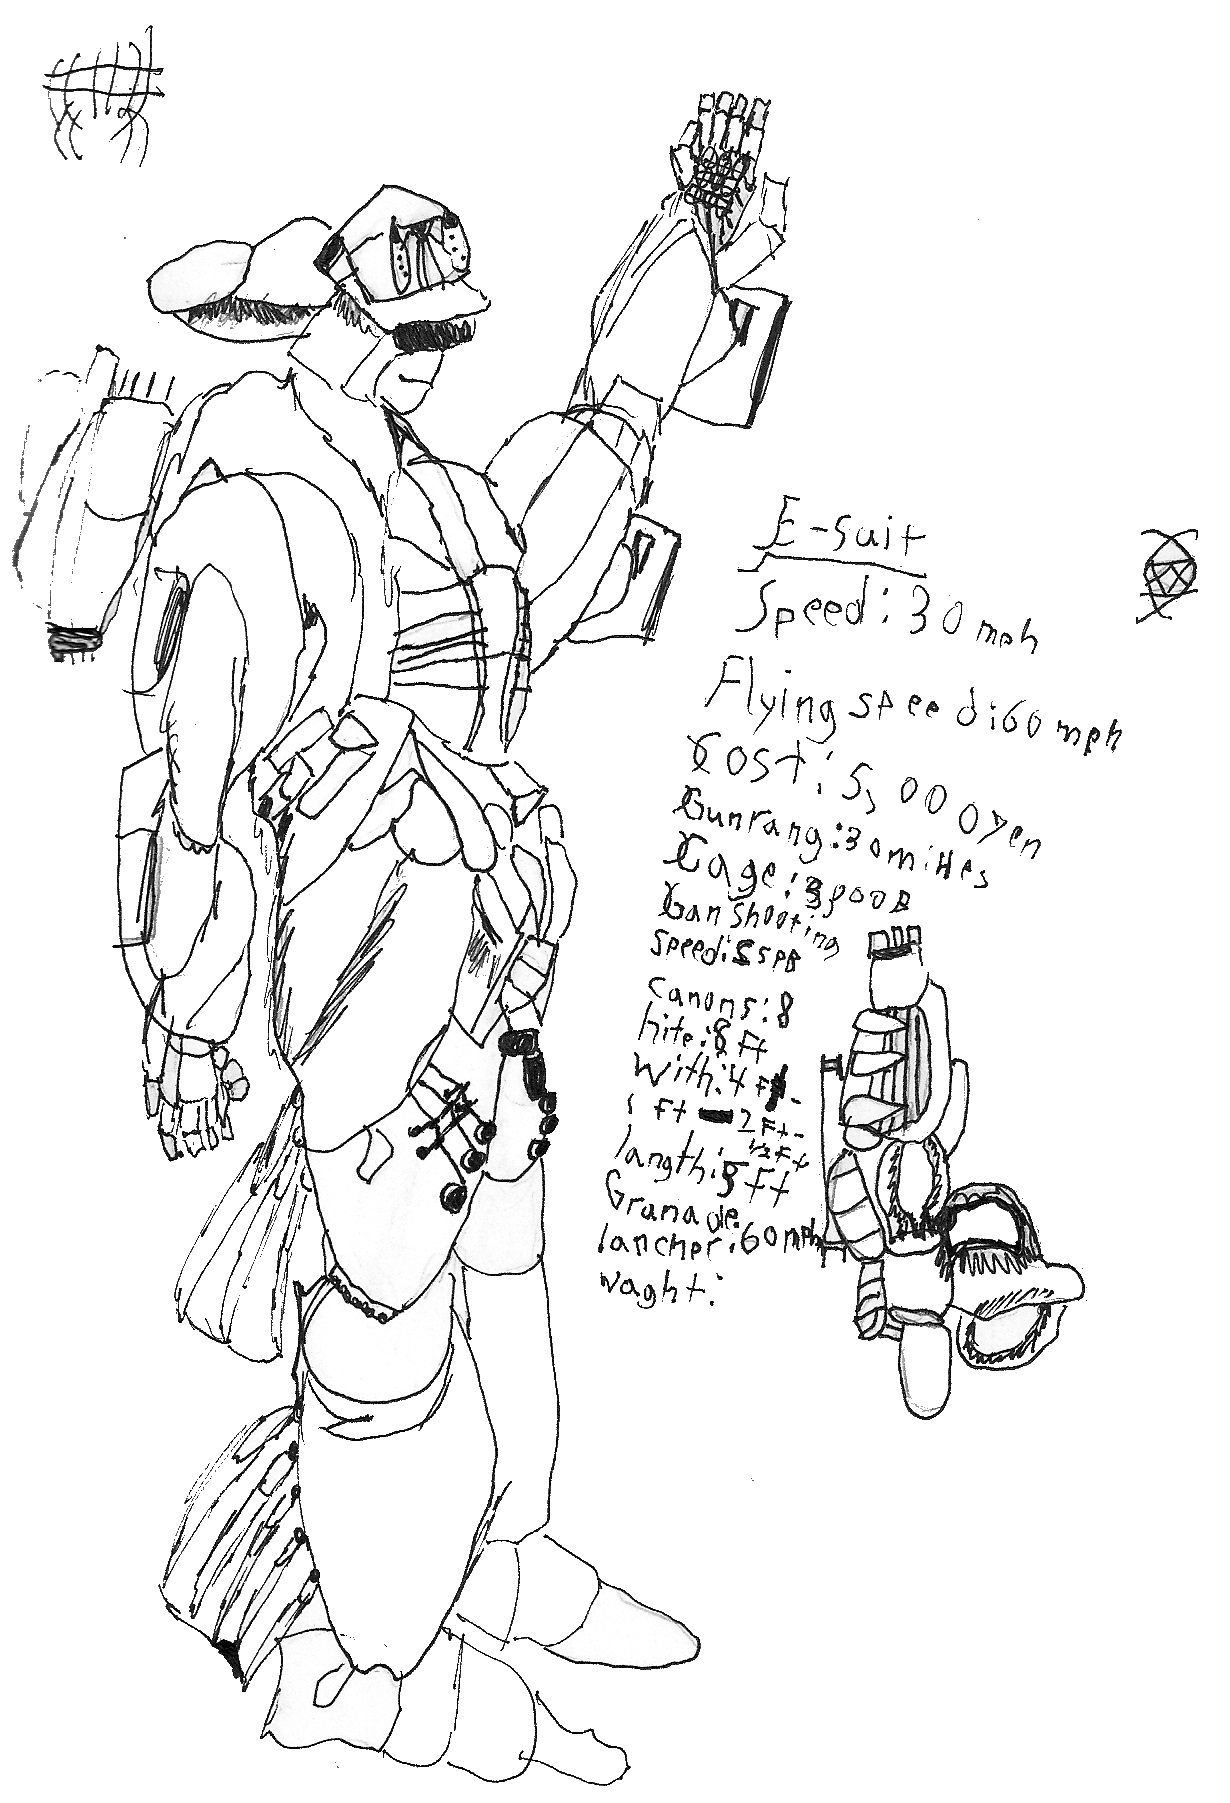 E-suit
Speed: 30 mph
Flying speed: 60 mph
Cost: 5,000 yen
Gunrang: 30 milles
Cage:
Gan shooting
speed:
canons: 8
hite: 8 ft
With: 4 ft-
1 ft - 2 Ft-
1/2 Ft
langth: 5 ft
Granade
lancher: 60 mph
waght: